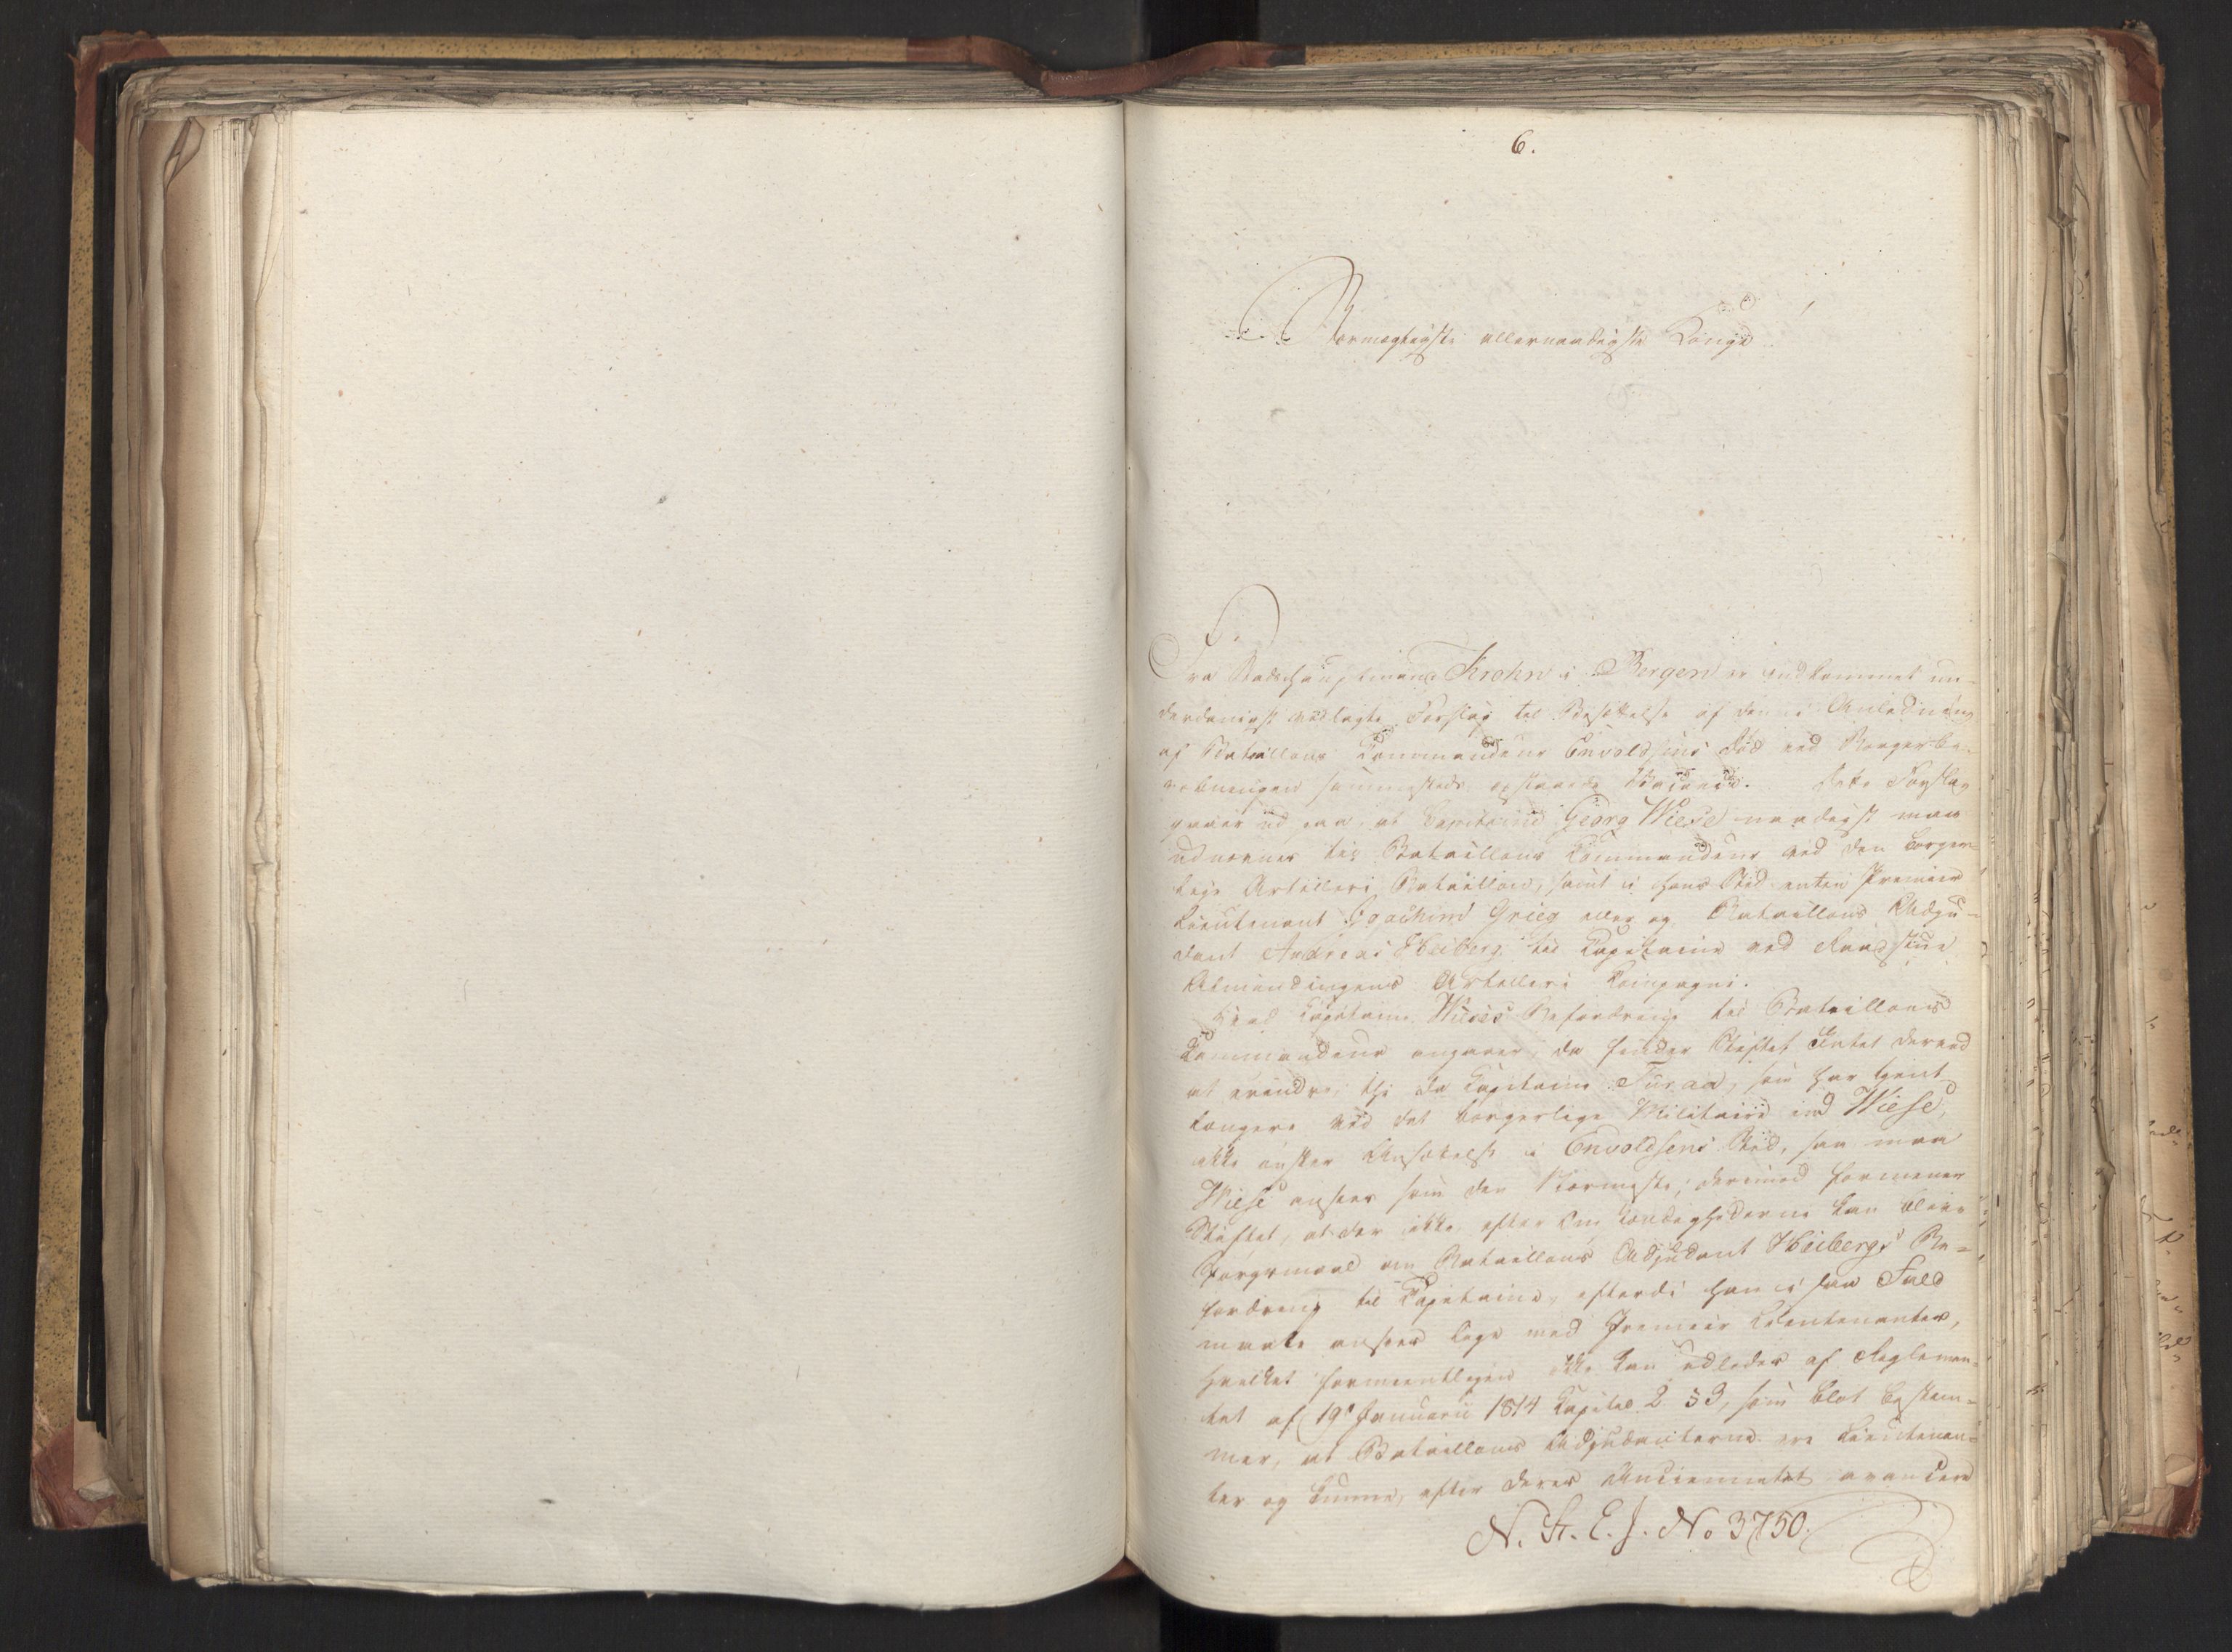 6.
Stormægtigste allernaadigste Konge!
Fra Stadshauptmand Krohn i Bergen er indkommet un-
derdanigst vedlagte Forslag til Besættelse af den i Anledning
af Bataillons Kommandeur Envoldsens Død ved Borgerbe-
væbningen sammesteds opstaaede Vacance. Dette Forslag
gaaer ud paa, at Capitaine Georg Wiese naadigst maa
udnævnes til Bataillons Kommandeur ved den borger-
lige Artilleri Bataillon, samt i hans Sted enten Premier
Lieutenant Joachim Grieg eller og Bataillons Adju-
dant Andreas Heiberg til Capitaine ved Raadstue
Almindingens Artilleri Kompagni.
Hvad Kapitaine Wieses Befordring til Bataillons
Kommandeur angaaer, da finder Stiftet Intet derved
at erindre; thi da Kapitaine Furaa, som har tjent
længere ved det borgerlige Militaire end Wiese,
ikke ønsker Ansættelse i Envoldsens Sted, saa maa
Wiese ansees som den Nærmeste; derimod formener
Stiftet, at der ikke efter Omstændighederne kan blive
Spørgsmaal om Bataillons Adjudant Heibergs Be-
fordring til Capitaine, efterdi han i saa Fald
maatte ansees lige med Premier Lieutenanter,
hvilket formeentligen ikke kan udledes af Reglemen-
tet af 19de Januarii 1814 Kapitel 2 § 3, som blot bestem-
mer, at Bataillons Adjudanterne ere Lieutenan-
ter og kunne, efter deres Anciennetet avancere
N. St. E. J. No 3750.